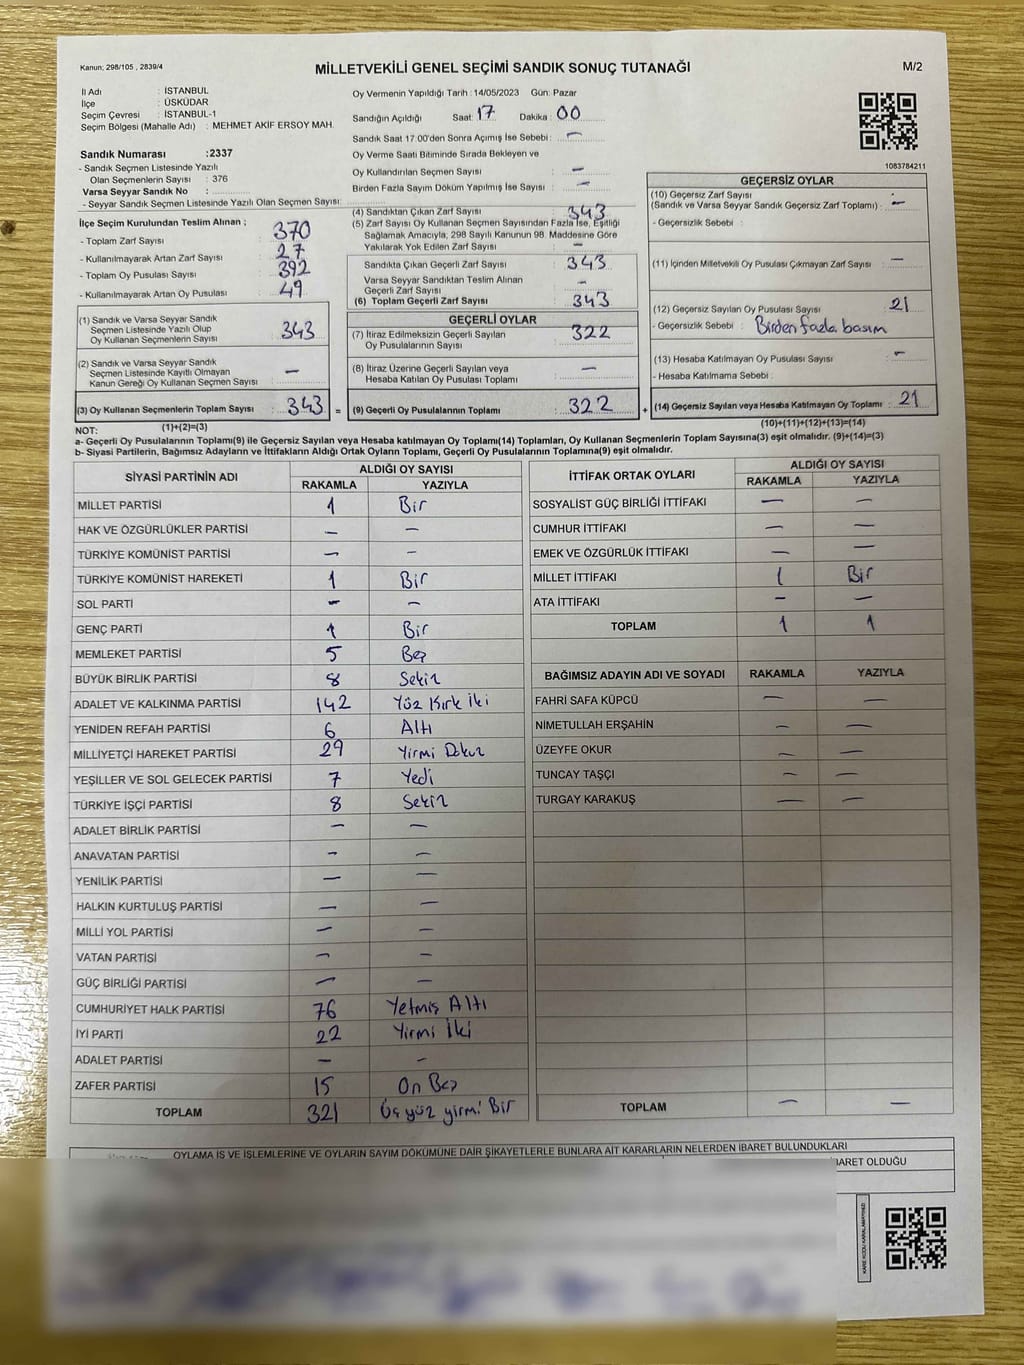 Kanun; 298/105 , 2839/4
MİLLETVEKİLİ GENEL SEÇİMİ SANDIK SONUÇ TUTANAĞI
M/2
İl Adı : İSTANBUL
İlçe : ÜSKÜDAR
Seçim Çevresi : İSTANBUL-1
Seçim Bölgesi (Mahalle Adı) : MEHMET AKİF ERSOY MAH.
Sandık Numarası :2337
- Sandık Seçmen Listesinde Yazılı
Olan Seçmenlerin Sayısı : 376
Varsa Seyyar Sandık No :
- Seyyar Sandık Seçmen Listesinde Yazılı Olan Seçmen Sayısı:
Oy Vermenin Yapıldığı Tarih : 14/05/2023 Gün: Pazar
Sandığın Açıldığı Saat: 17 Dakika : 00
Sandık Saat 17 00'den Sonra Açımış İse Sebebi : —
Oy Verme Saati Bitiminde Sırada Bekleyen ve
Oy Kullandırılan Seçmen Sayısı : —
Birden Fazla Sayım Döküm Yapılmış İse Sayısı : —
1083784211
İlçe Seçim Kurulundan Teslim Alınan ;
- Toplam Zarf Sayısı : 370
- Kullanılmayarak Artan Zarf Sayısı : 27
- Toplam Oy Pusulası Sayısı : 392
- Kullanılmayarak Artan Oy Pusulası : 49
(1) Sandık ve Varsa Seyyar Sandık
Seçmen Listesinde Yazılı Olup
Oy Kullanan Seçmenlerin Sayısı : 343
(2) Sandık ve Varsa Seyyar Sandık
Seçmen Listesinde Kayıtlı Olmayan
Kanun Gereği Oy Kullanan Seçmen Sayısı : —
(3) Oy Kullanan Seçmenlerin Toplam Sayısı : 343 =
(1)+(2)=(3)
(4) Sandıktan Çıkan Zarf Sayısı : 343
(5) Zarf Sayısı Oy Kullanan Seçmen Sayısından Fazla İse, Eşitliği
Sağlamak Amacıyla, 298 Sayılı Kanunun 98. Maddesine Göre
Yakılarak Yok Edilen Zarf Sayısı : —
Sandıkta Çıkan Geçerli Zarf Sayısı : 343
Varsa Seyyar Sandıktan Teslim Alınan
Geçerli Zarf Sayısı : —
(6) Toplam Geçerli Zarf Sayısı : 343
GEÇERLİ OYLAR
(7) İtiraz Edilmeksizin Geçerli Sayılan
Oy Pusulalarının Sayısı : 322
(8) İtiraz Üzerine Geçerli Sayılan veya
Hesaba Katılan Oy Pusulası Toplamı : —
(9) Geçerli Oy Pusulalarının Toplamı : 322 +
GEÇERSİZ OYLAR
(10) Geçersiz Zarf Sayısı
(Sandık ve Varsa Seyyar Sandık Geçersiz Zarf Toplamı) : —
- Geçersizlik Sebebi :
(11) İçinden Milletvekili Oy Pusulası Çıkmayan Zarf Sayısı : —
(12) Geçersiz Sayılan Oy Pusulası Sayısı : 21
- Geçersizlik Sebebi : Birden fazla basım
(13) Hesaba Katılmayan Oy Pusulası Sayısı : —
- Hesaba Katılmama Sebebi :
(14) Geçersiz Sayılan veya Hesaba Katılmayan Oy Toplamı : 21
(10)+(11)+(12)+(13)=(14)
NOT:
a- Geçerli Oy Pusulalarının Toplamı(9) ile Geçersiz Sayılan veya Hesaba katılmayan Oy Toplamı(14) Toplamları, Oy Kullanan Seçmenlerin Toplam Sayısına(3) eşit olmalıdır. (9)+(14)=(3)
b- Siyasi Partilerin, Bağımsız Adayların ve İttifakların Aldığı Ortak Oyların Toplamı, Geçerli Oy Pusulalarının Toplamına(9) eşit olmalıdır.
SİYASİ PARTİNİN ADI ALDIĞI OY SAYISI
RAKAMLA YAZIYLA
MİLLET PARTİSİ 1 Bir
HAK VE ÖZGÜRLÜKLER PARTİSİ — —
TÜRKİYE KOMÜNİST PARTİSİ — —
TÜRKİYE KOMÜNİST HAREKETİ 1 Bir
SOL PARTİ — —
GENÇ PARTİ 1 Bir
MEMLEKET PARTİSİ 5 Beş
BÜYÜK BİRLİK PARTİSİ 8 Sekiz
ADALET VE KALKINMA PARTİSİ 142 Yüz Kırk İki
YENİDEN REFAH PARTİSİ 6 Altı
MİLLİYETÇİ HAREKET PARTİSİ 29 Yirmi Dokuz
YEŞİLLER VE SOL GELECEK PARTİSİ 7 Yedi
TÜRKİYE İŞÇİ PARTİSİ 8 Sekiz
ADALET BİRLİK PARTİSİ — —
ANAVATAN PARTİSİ — —
YENİLİK PARTİSİ — —
HALKIN KURTULUŞ PARTİSİ — —
MİLLİ YOL PARTİSİ — —
VATAN PARTİSİ — —
GÜÇ BİRLİĞİ PARTİSİ — —
CUMHURİYET HALK PARTİSİ 76 Yetmiş Altı
İYİ PARTİ 22 Yirmi İki
ADALET PARTİSİ — —
ZAFER PARTİSİ 15 On Beş
TOPLAM 321 Üç yüz yirmi Bir
İTTİFAK ORTAK OYLARI ALDIĞI OY SAYISI
RAKAMLA YAZIYLA
SOSYALİST GÜÇ BİRLİĞİ İTTİFAKI — —
CUMHUR İTTİFAKI — —
EMEK VE ÖZGÜRLÜK İTTİFAKI — —
MİLLET İTTİFAKI 1 Bir
ATA İTTİFAKI — —
TOPLAM 1 1
BAĞIMSIZ ADAYIN ADI VE SOYADI RAKAMLA YAZIYLA
FAHRİ SAFA KÜPCÜ — —
NİMETULLAH ERŞAHİN — —
ÜZEYFE OKUR — —
TUNCAY TAŞÇI — —
TURGAY KARAKUŞ — —
TOPLAM — —
OYLAMA İŞ VE İŞLEMLERİNE VE OYLARIN SAYIM DÖKÜMÜNE DAİR ŞİKAYETLERLE BUNLARA AİT KARARLARIN NELERDEN İBARET BULUNDUKLARI
İBARET OLDUĞU
KARE KODU KARALAMAYINIZ